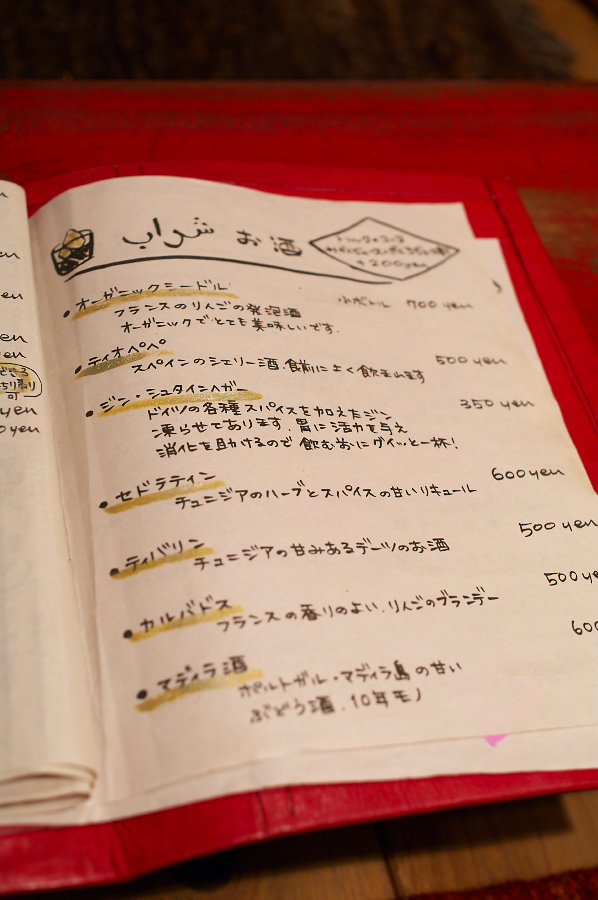 شراب お酒
+200yen
• オーガニックシードル 小ボトル 700 yen
フランスのりんごの発泡酒
オーガニックでとても美味しいです.
• ティオペペ 500 yen
スペインのシェリー酒.食前によく飲まれます
• ジン・シュタインヘガー 350 yen
ドイツの各種スパイスを加えたジン
凍らせてあります.胃に活力を与え
消化を助けるので飲むおにグイッと一杯!
• セドラティン 600 yen
チュニジアのハーブとスパイスの甘いリキュール
• ティバリン 500 yen
チュニジアの甘みあるデーツのお酒
• カルバドス 500 ye
フランスの香りのよい.りんごのブランデー
• マディラ酒 600
ポルトガル・マディラ島の甘い
ぶどう酒.10年モノ
yen
yen
yen
yen
できる
可
yen
0 yen